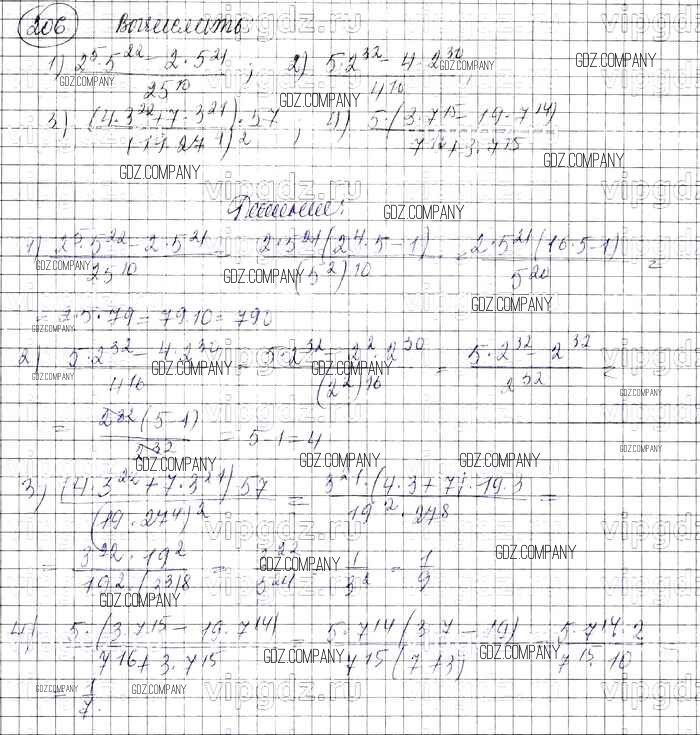 206 Вычислить:
1) 2⁵·5²² − 2·5²¹ / 25¹⁰ ; 2) 5·2³² − 4·2³⁰ / 4¹⁶
3) (4·3²² + 7·3²¹)·57 / ; 4) 5·(3·7¹⁵ − 19·7¹⁴) / 7¹⁶ + 3·7¹⁵
Решение:
1) 2⁵·5²² − 2·5²¹ / 25¹⁰ = 2·5²¹(2⁴·5 − 1) / (5²)¹⁰ = 2·5²¹(16·5−1) / 5²⁰ =
= 2·5·79 = 79·10 = 790
2) 5·2³² − 4·2³⁰ / 4¹⁶ = 5·2³² − 2²·2³⁰ / (2²)¹⁶ = 5·2³² − 2³² / 2³² =
= 2³²(5−1) / 2³² = 5−1 = 4
3) (4·3²² + 7·3²¹)57 / (19·27⁴)² = 3²¹·(4·3+7)·19·3 / 19²·27⁸ =
= 3²²·19² / 19²·(3³)⁸ = 3²² / 3²⁴ = 1 / 3² = 1/9
4) 5·(3·7¹⁵ − 19·7¹⁴) / 7¹⁶ + 3·7¹⁵ = 5·7¹⁴(3·7 − 19) / 7¹⁵(7+3) = 5·7¹⁴·2 / 7¹⁵·10
= 1/7.
vipgdz.ru
GDZ.COMPANY